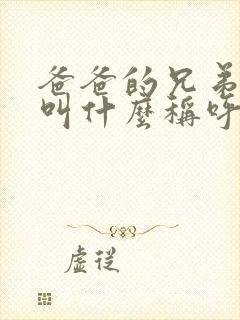 爸爸的兄弟
叫什麼稱呼
虛從